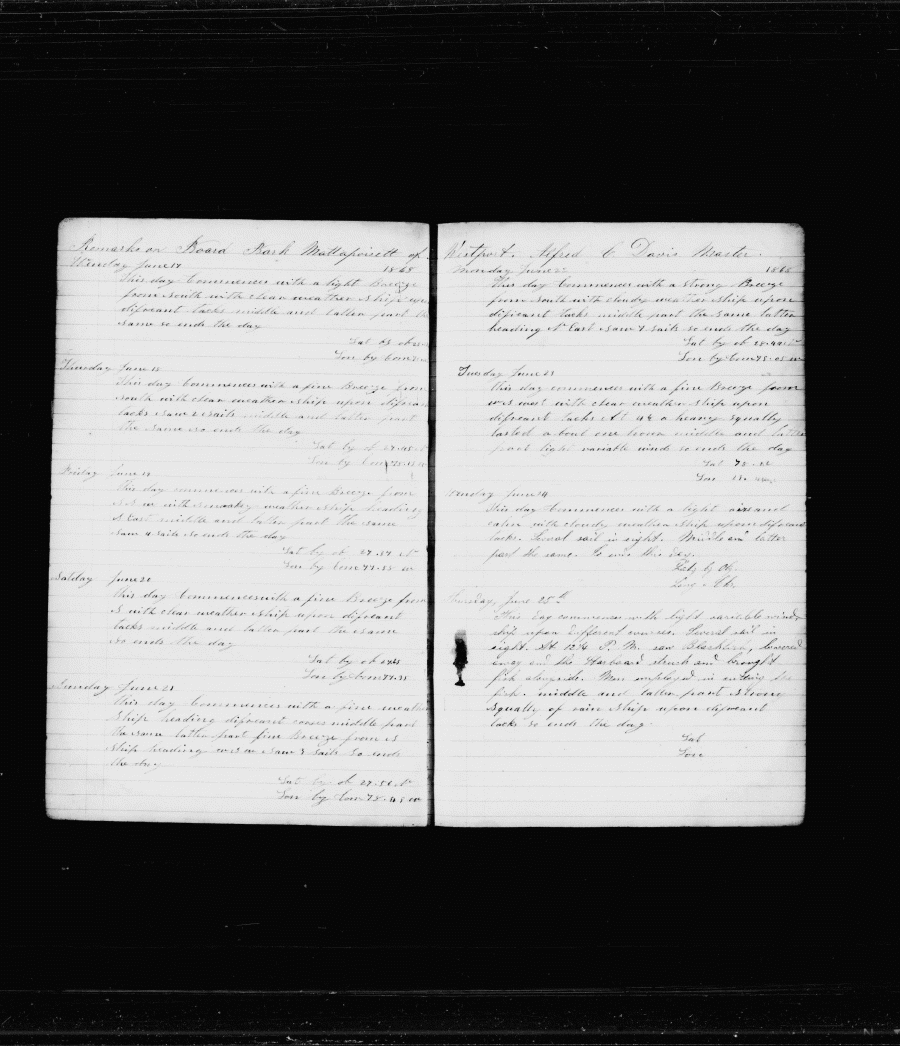 Remarks on Board Bark Mattapoisett of
Wendsday June 17 1868
This day Commences with a light Breeze
from South with clear weather Ship upon
difreant tacks middle and latter part the
Same so ends the day
Lat by ob
Lon by Crom
Thursday June 18
This day Commences with a fine Breeze from
South with clear weather Ship upon difreant
tacks Saw 2 Sails middle and latter part
the Same so ends the day
Lat by ob
Lon by Crom
Friday June 19
This day commences with a fine Breeze from
S S w with Smoaky weather Ship heading
S East middle and latter part the same
Saw 4 Sails So ends the day
Lat by ob 27-57 N
Lon by Crom 77-58 w
Satday June 20
This day Commences with a fine Breeze from
S with clear weather Ship upon difreant
tacks middle and latter part the same
so ends the day
Lat by ob
Lon by Crom
Sunday June 21
This day Commences with a fine weather
Ship heading difreant corses middle part
the Same latter part fine Breeze from S
Ship heading w S w Saw 3 Sails So ends
the day
Lat by ob 27-56 N
Lon by Crom 78-48 w
Westport. Alfred C Davis Master.
Monday June 22 1868
This day Commences with a strong Breeze
from South with cloudy weather Ship upon
difreant tacks middle part the Same latter
heading N East Saw 7 Sails so ends the day
Lat by ob 28-42 N
Lon by Crom 78-05 w
Tuesday June 23
This day commences with a fine Breeze from
w S west with clear weather Ship upon
difreant tacks At 4 a heavy Squally
lasted a bout one hour middle and latter
part light variable winds so ends the day
Lat
Lon
Wendsday June 24
This day Commences with a light airs and
calm with cloudy weather Ship upon difreant
tacks. Several sail in sight. Middle and latter
part the same. So ends this day.
Lat by Ob.
Long
Thursday, June 25th
This day commences with light variable winds
ship upon different courses. Several sail in
sight. At 12½ P. M. saw Blackfish, lowered
away and the Starboard struck and brought
fish alongside. Men employed in cutting the
fish. middle and latter part Strong
Squally of rain Ship upon difreant
tacks so ends the day
Lat
Lon